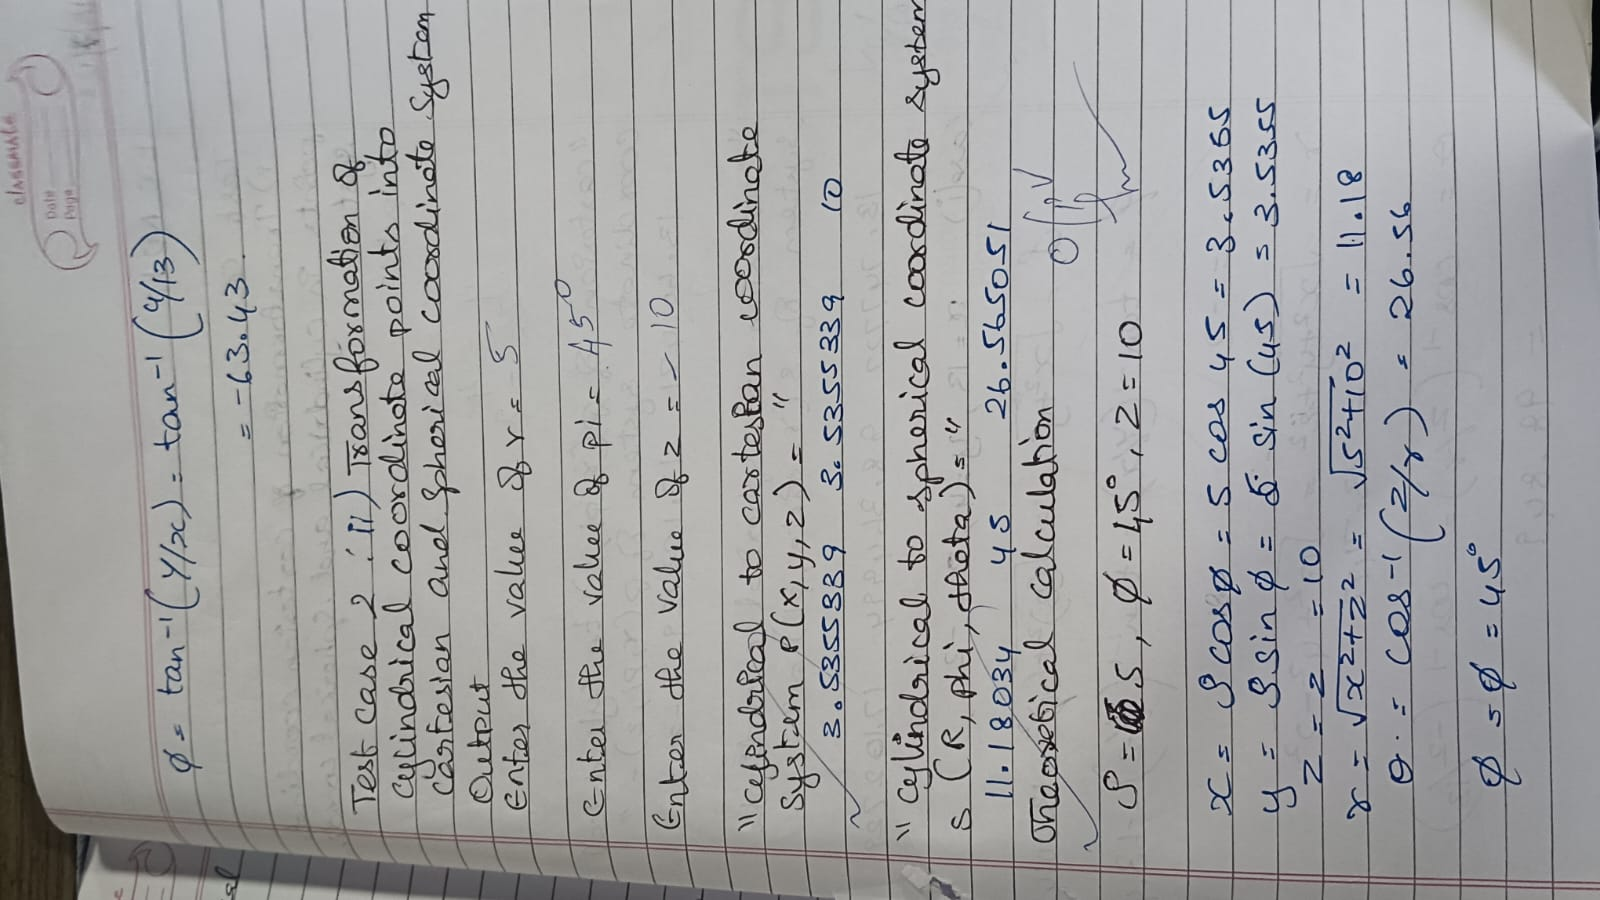 classmate
Date
Page
φ = tan⁻¹(y/x) = tan⁻¹(4/13)
= -63.43.
Test case 2 : ii) Transformation of
cylindrical coordinate points into
cartesian and spherical coordinate system
Output
Enter the value of r = 5
Enter the value of pi = 45⁰
Enter the value of z = 10
"cylindrical to cartesian coordinate
system P(x,y,z) = "
3.5355339 3.5355339 10
"cylindrical to spherical coordinate system
S (R, phi, theta) = "
11.18034 45 26.565051
Theoretical calculation
ρ = 5, φ = 45°, z = 10
x = ρ cosφ = 5 cos 45 = 3.5355
y = ρ sin φ = 5 sin (45) = 3.5355
z = z = 10
r = √x²+z² = √5²+10² = 11.18
θ = cos⁻¹(z/r) = 26.56
φ = φ = 45°